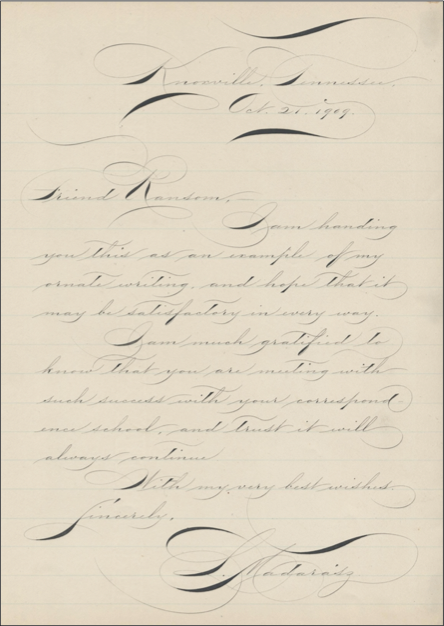 Knoxville, Tennessee.
Oct. 21, 1909.
Friend Ransom,—
I am handing
you this as an example of my
ornate writing, and hope that it
may be satisfactory in every way.
I am much gratified to
know that you are meeting with
such success with your correspond
ence school, and trust it will
always continue
With my very best wishes.
Sincerely,
L. Madarasz